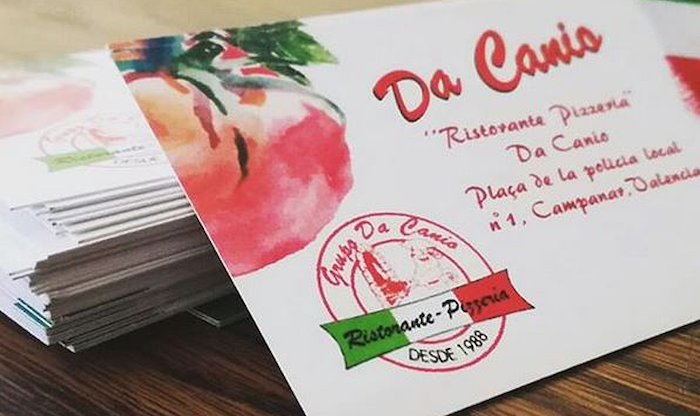 Da Canio
"Ristorante Pizzeria"
Da Canio
Plaça de la policia local
nº1, Campanar, Valencia
Grupo Da Canio
Ristorante-Pizzeria
DESDE 1988
Ristorante